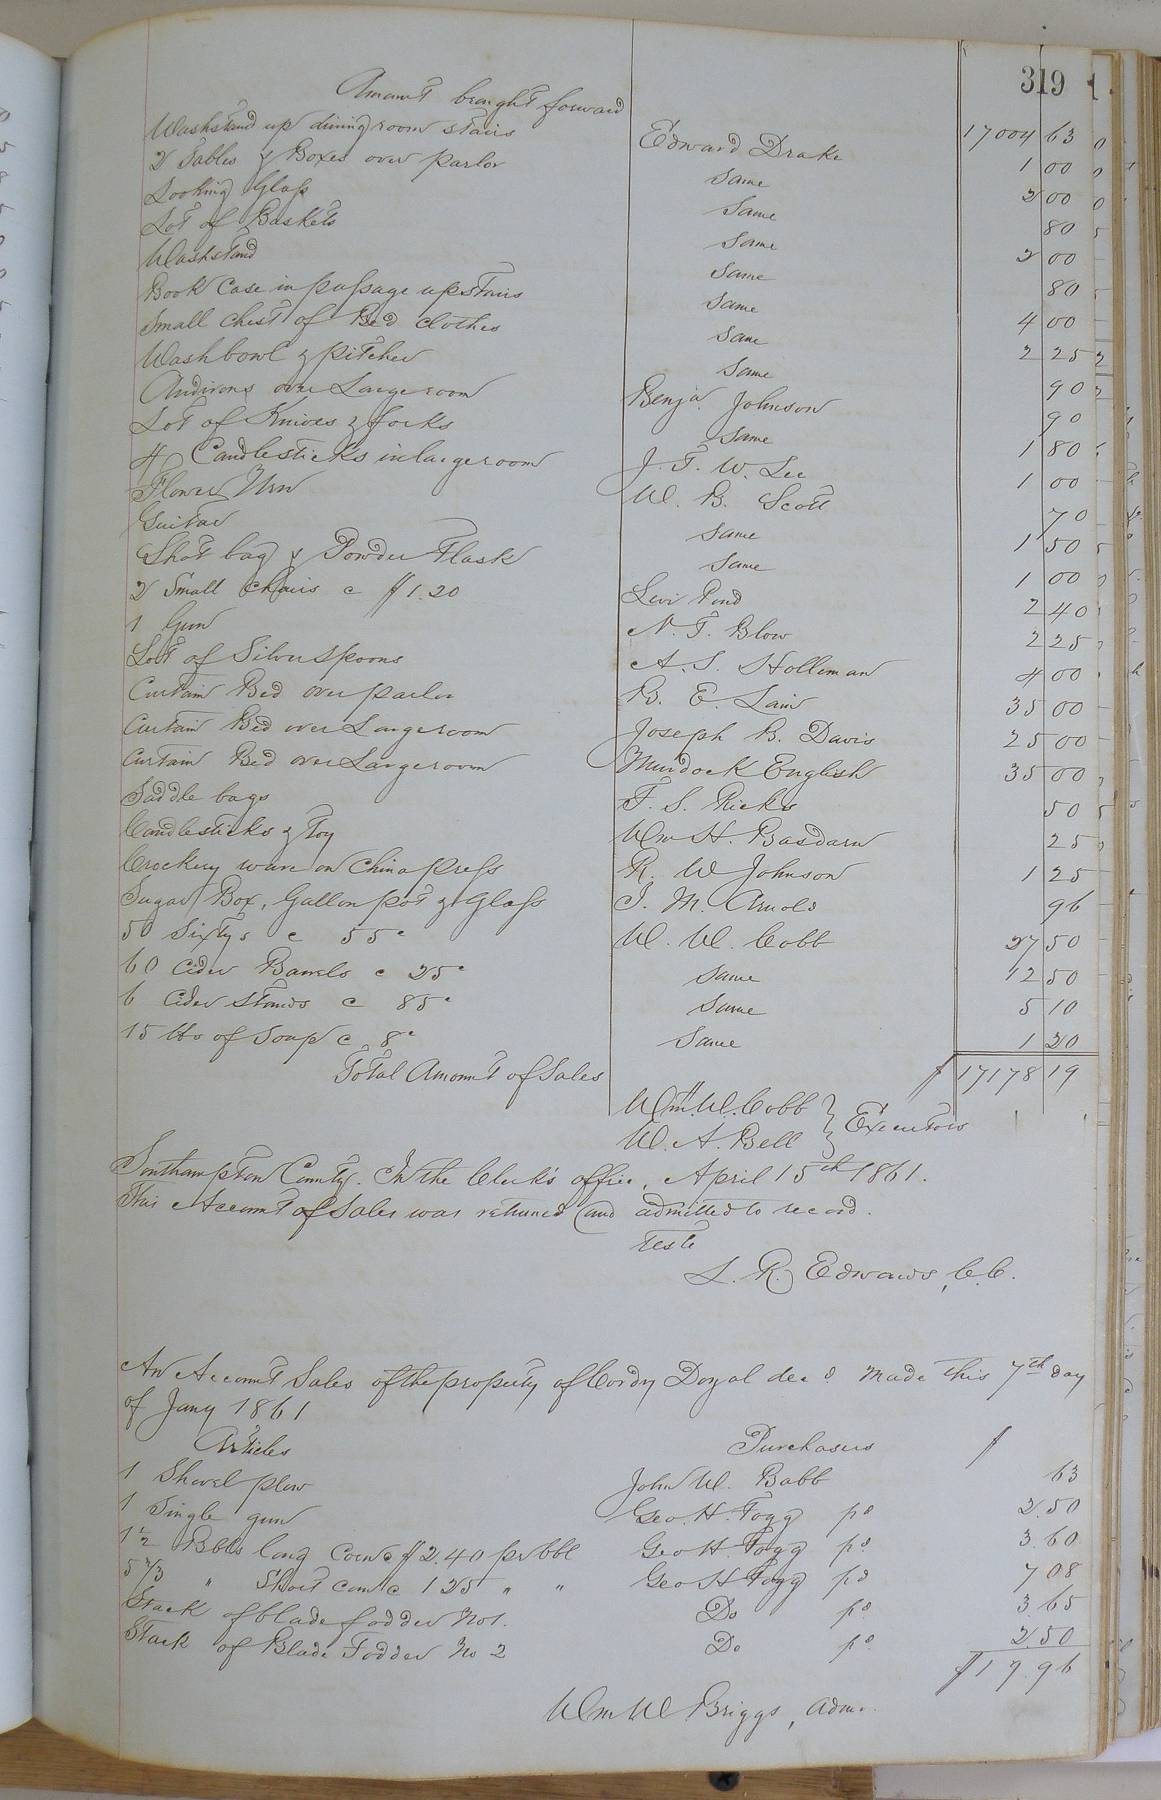 319
Amount brought forward 17004 63
Washstand up dining room stairs Edward Drake 1 00
2 Tables & Boxes over parlor Same 2 00
Looking Glass Same 80
Lot of Baskets Same 2 00
Washstand Same 80
Book Case in passage upstairs Same 4 00
Small Chest of Bed Clothes Same 2 25
Wash bowl & pitcher Same 90
Andirons over Large room Benja. Johnson 90
Lot of Knives & forks Same 1 80
4 Candlesticks in large room J. T. W. Lee 1 00
Flower Urn W. B. Scott 70
Guitar Same 1 50
Shot bag & Powder Flask Same 1 00
2 Small Chairs c $1.20 Levi Pond 2 40
1 Gun N. T. Blow 2 25
Lot of Silver Spoons A. S. Holleman 4 00
Curtain Bed over parlor B. E. Lain 35 00
Curtain Bed over Large room Joseph B. Davis 25 00
Curtain Bed over Large room Murdock English 35 00
Saddle bags T. S. Ricks 50
Candlesticks & Toy Wm H. Basdarn 25
Crockery ware on China press R. W Johnson 1 25
Sugar Box, Gallon pot & Glass J. M. Arnold 96
50 Sixtys c 55c W. W. Cobb 27 50
60 Cider Barrels c 25c Same 12 50
6 Cider Stands c 85c Same 5 10
15 lbs of Soap c 8c Same 1 20
Total Amount of Sales $ 17178 19
Wm. W. Cobb } Executors
W. A. Bell }
Southampton County. In the Clerk's office, April 15th 1861.
This Account of Sales was returned and admitted to record.
Teste
L. R. Edwards, C.C.
An Account Sales of the property of Cordy Doyal decd Made this 7th day
of Jany 1861
Articles Purchasers $
1 Shovel plow John W. Babb 63
1 Single gun Geo. H. Fogg pd 2.50
1 1/2 Bbls long Corn c $2.40 pr bbl Geo H. Fogg pd 3.60
5 2/3 " Short corn c 1 25 " " Geo H Fogg pd 7 08
Stack of blade fodder No 1. Do pd 3.65
Stack of Blade Fodder No 2 Do pd 2.50
$19.96
Wm W Briggs, Admr.